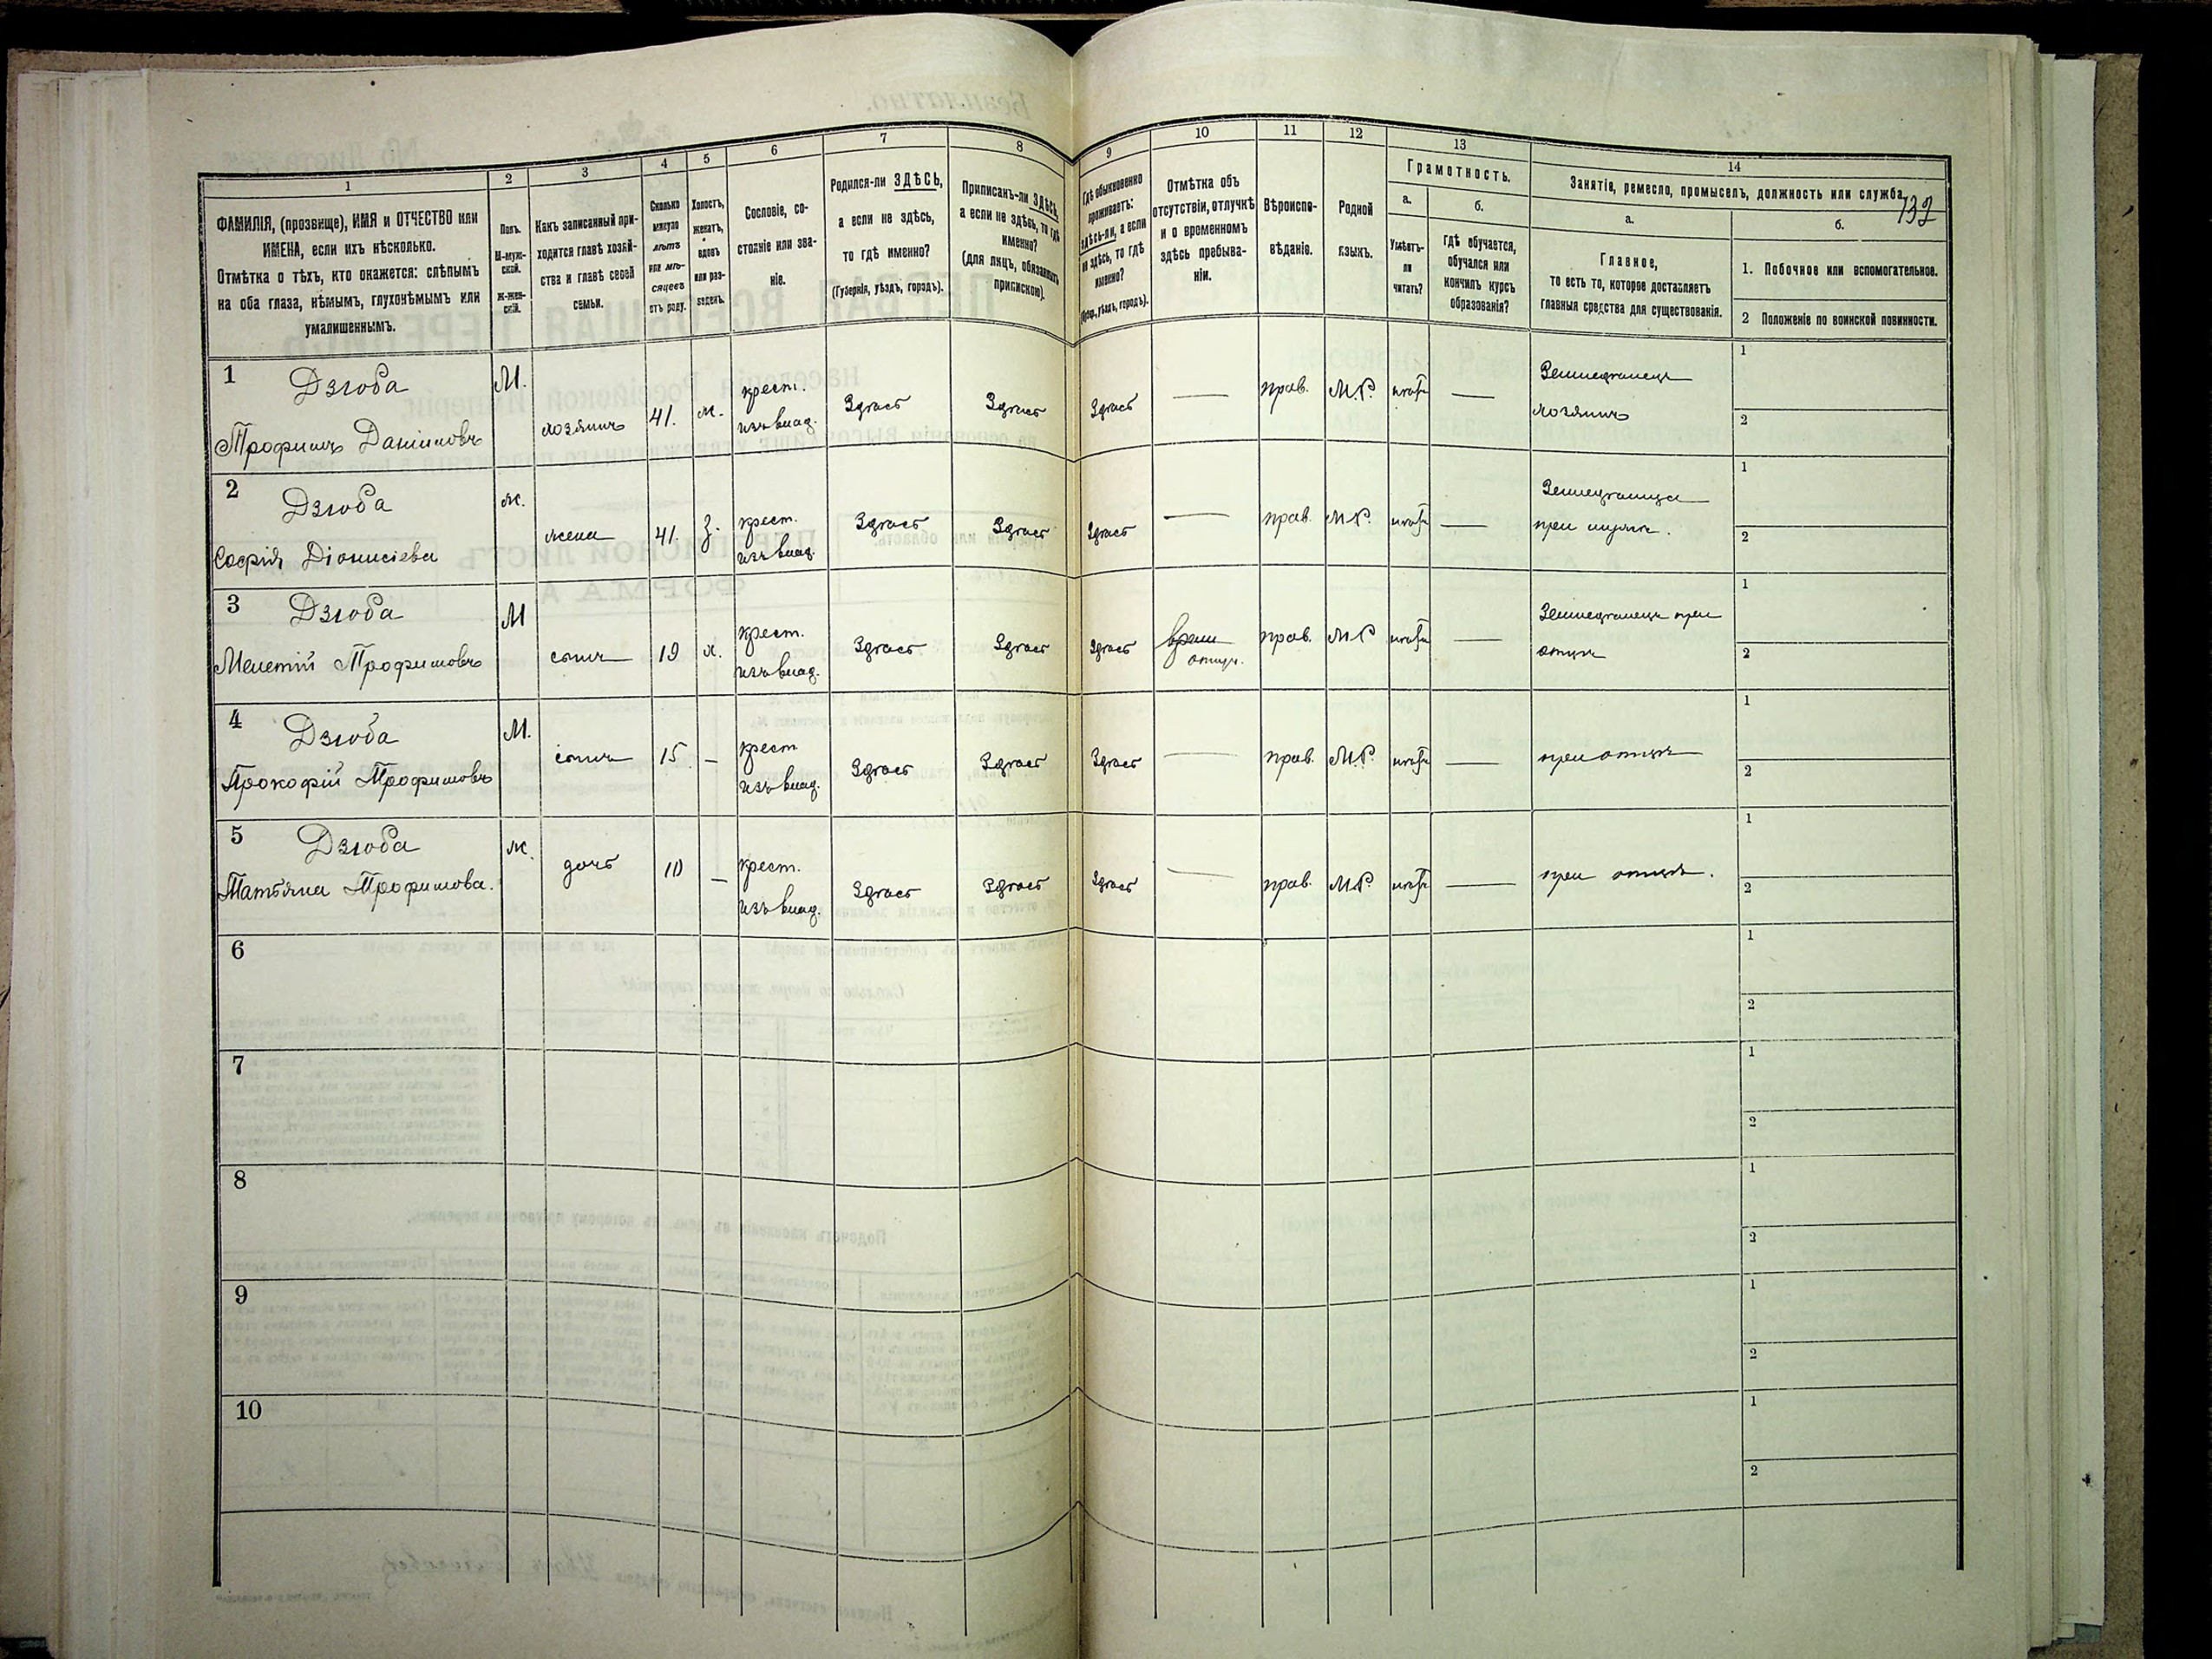 1
ФАМИЛІЯ, (прозвище), ИМЯ и ОТЧЕСТВО или
ИМЕНА, если ихъ нѣсколько.
Отмѣтка о тѣхъ, кто окажется: слѣпымъ
на оба глаза, нѣмымъ, глухонѣмымъ или
умалишеннымъ.
2
Полъ.
М-муж-
ской.
Ж-жен-
скій.
3
Какъ записанный при-
ходится главѣ хозяй-
ства и главѣ своей
семьи.
4
Сколько
минуло
лѣтъ
или мѣ-
сяцевъ
отъ роду.
5
Холостъ,
женатъ,
вдовъ
или раз-
веденъ.
6
Сословіе, со-
стояніе или зва-
ніе.
7
Родился-ли ЗДѢСЬ,
а если не здѣсь,
то гдѣ именно?
(Губернія, уѣздъ, городъ).
8
Приписанъ-ли ЗДѢСЬ,
а если не здѣсь, то гдѣ
именно?
(для лицъ, обязанныхъ
припискою).
9
Гдѣ обыкновенно
проживаетъ:
здѣсь-ли, а если
не здѣсь, то гдѣ
именно?
(Губер., уѣздъ, городъ).
10
Отмѣтка объ
отсутствіи, отлучкѣ
и о временномъ
здѣсь пребыва-
ніи.
11
Вѣроиспо-
вѣданіе.
12
Родной
языкъ.
13
Грамотность.
а.
Умѣетъ-
ли
читать?
б.
гдѣ обучается,
обучался или
кончилъ курсъ
образованія?
14
Занятіе, ремесло, промыселъ, должность или служба.
132
а.
Главное,
то есть то, которое доставляетъ
главныя средства для существованія.
б.
1. Побочное или вспомогательное.
2 Положеніе по воинской повинности.
1 Дзюба
Трофимъ Даниловъ
М.
хозяинъ
41.
ж.
крест.
изъ влад.
Здѣсь
Здѣсь
Здѣсь
—
прав.
М.Р.
нѣтъ
—
Земледѣлецъ
хозяинъ
1
2
2 Дзюба
Софія Діонисіева
ж.
жена
41.
з.
крест.
изъ влад.
Здѣсь
Здѣсь
Здѣсь
—
прав.
М.Р.
нѣтъ
—
Земледѣлица
при мужѣ.
1
2
3 Дзюба
Мелетій Трофимовъ
М
сынъ
19
х.
крест.
изъ влад.
Здѣсь
Здѣсь
Здѣсь
врем
отлуч.
прав.
М.Р
нѣтъ
—
Земледѣлецъ при
отцѣ
1
2
4 Дзюба
Прокофій Трофимовъ
М.
сынъ
15.
—
крест
изъ влад.
Здѣсь
Здѣсь
Здѣсь
—
прав.
М.Р.
нѣтъ
—
при отцѣ
1
2
5 Дзюба
Татьяна Трофимова.
ж.
дочь
10
—
крест.
изъ влад.
Здѣсь
Здѣсь
Здѣсь
—
прав.
М.Р.
нѣтъ
—
при отцѣ.
1
2
6
1
2
7
1
2
8
1
2
9
1
2
10
1
2